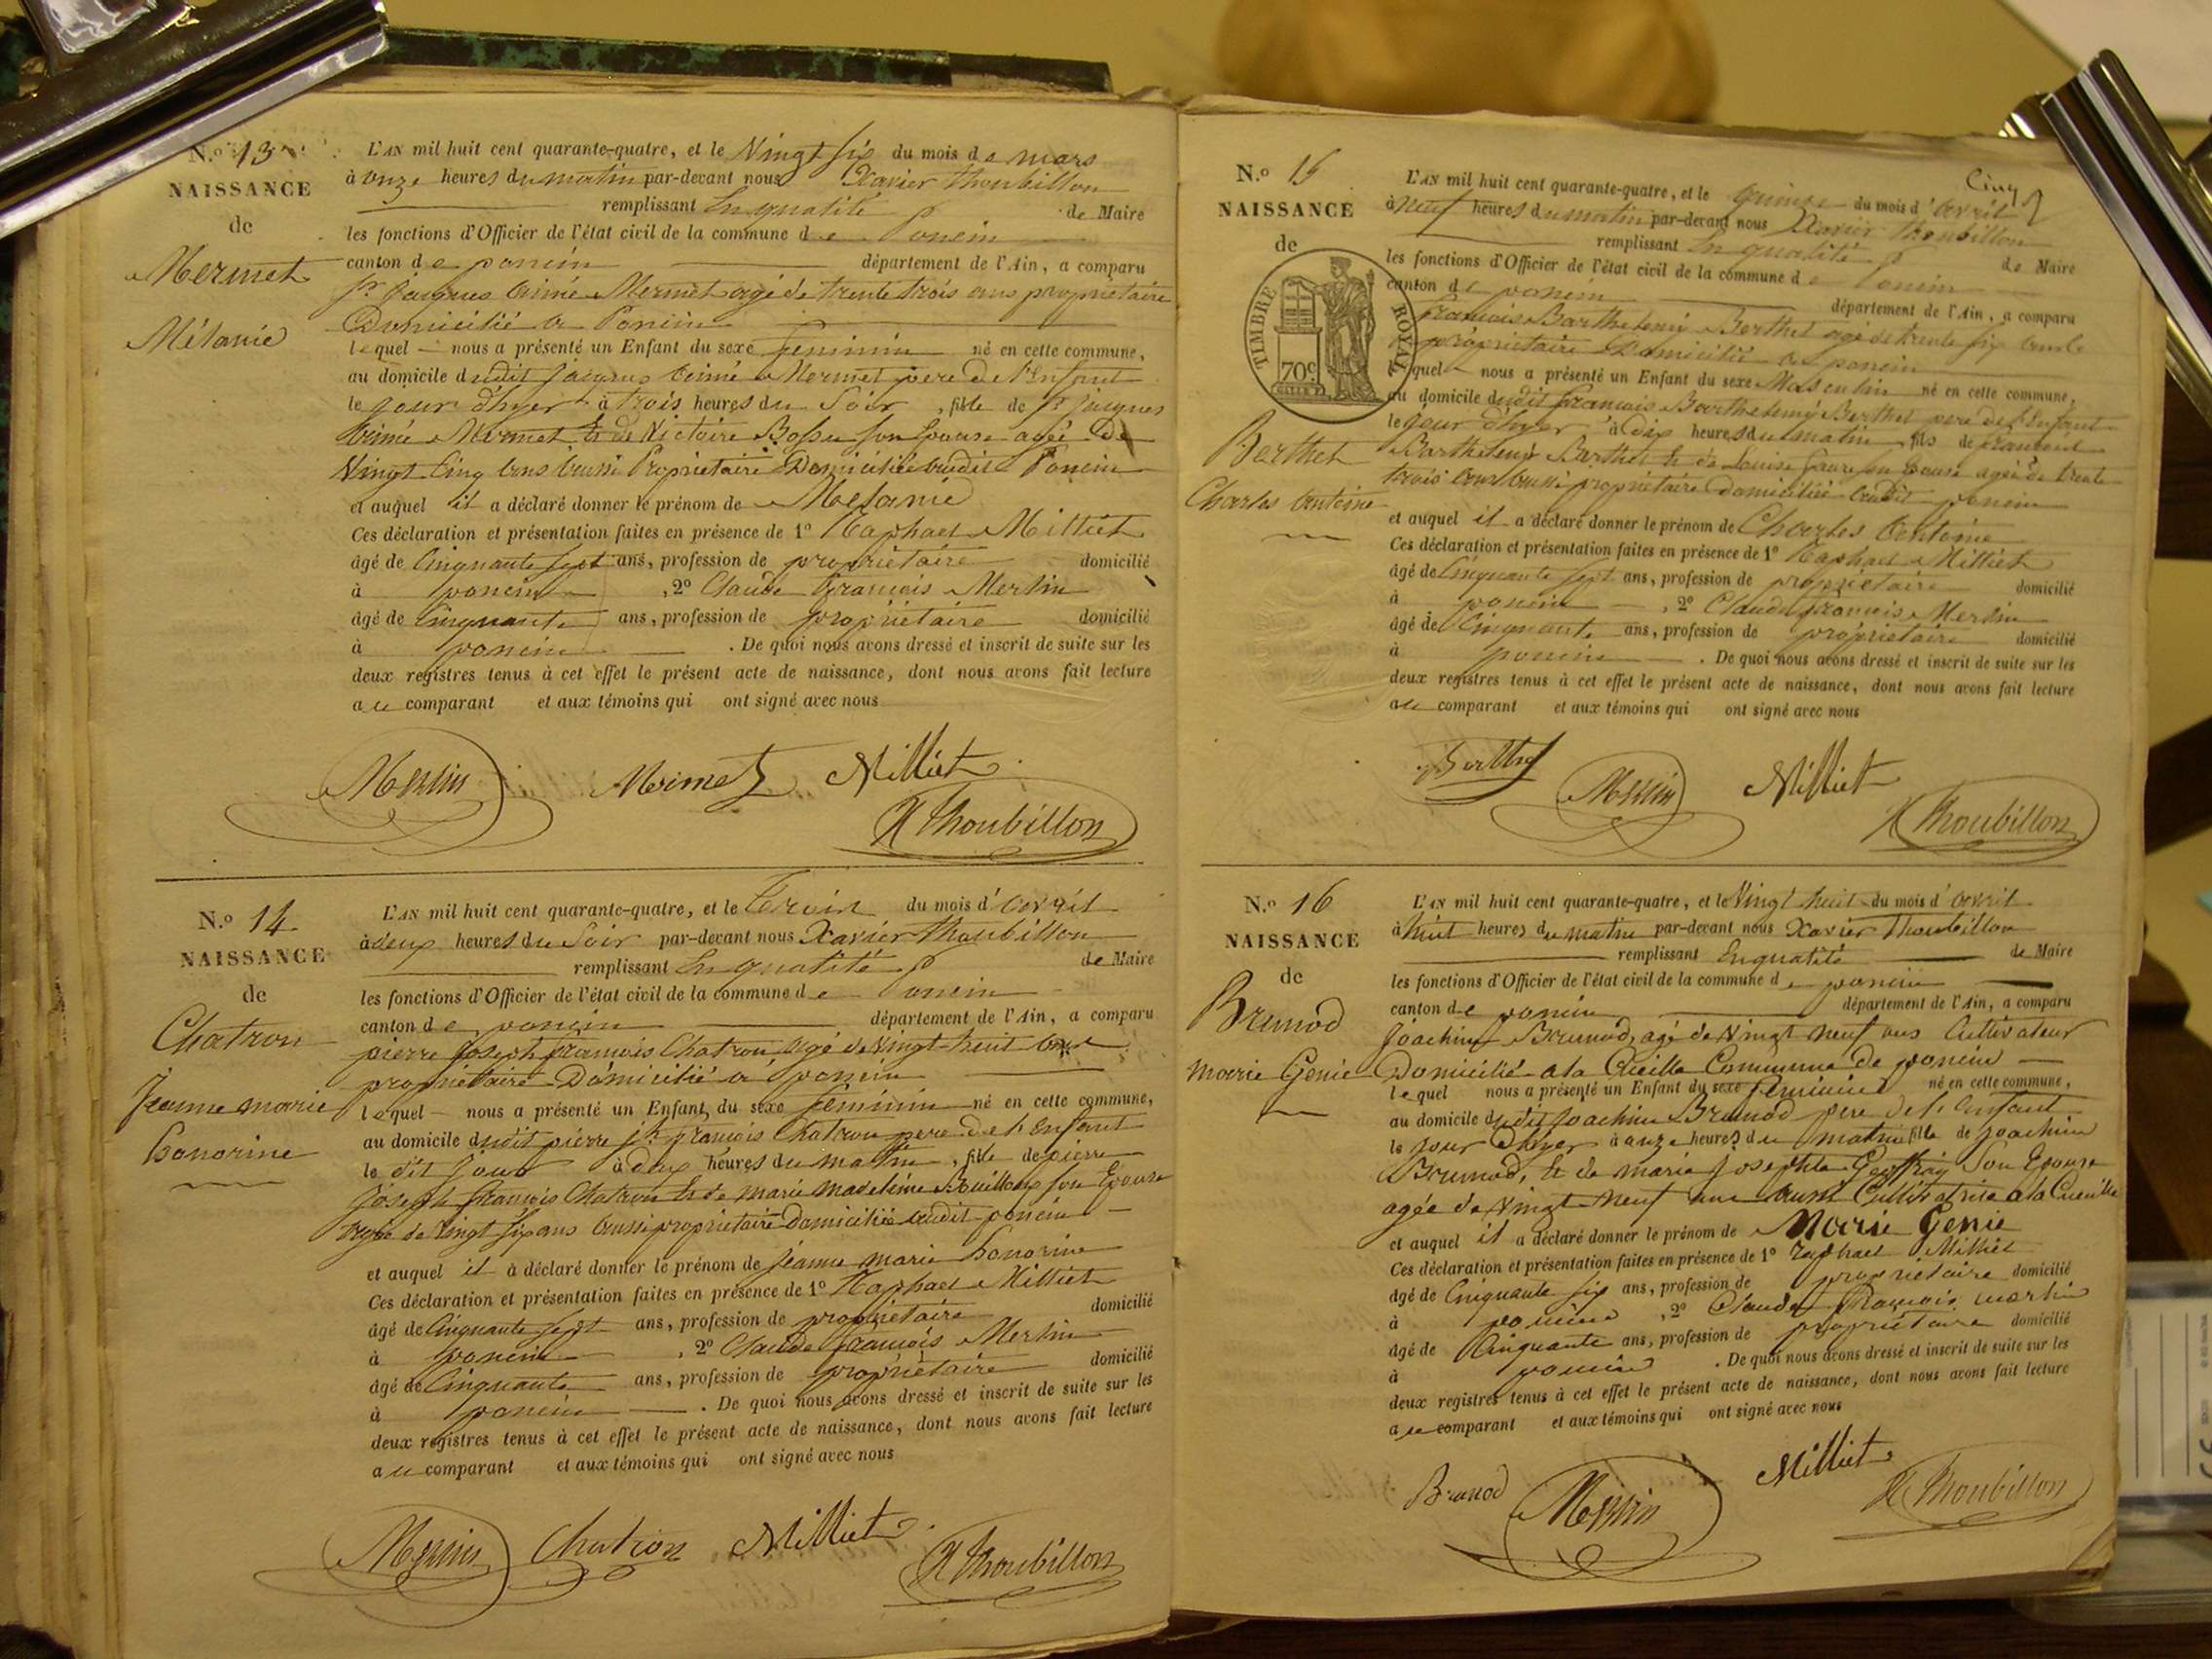 N.o 13
NAISSANCE
de
Mermet
Mélanie
L'AN mil huit cent quarante-quatre, et le Vingt six du mois de mars
à onze heures du matin par-devant nous Xavier Thoubillon
remplissant En qualité de Maire
les fonctions d'Officier de l'état civil de la commune de Poncin
canton de poncin département de l'Ain, a comparu
Jacques Aimé Mermet agé de trente trois ans propriétaire
Domicilié a Poncin
lequel nous a présenté un Enfant du sexe feminin né en cette commune,
au domicile dudit Jacques Aimé Mermet père de l'Enfant
le jour d'hyer à trois heures du Soir, fille de Jacques
Aimé Mermet Et de Victoire Bossu son Epouse agée De
Vingt Cinq ans aussi Propriétaire Domiciliée audit Poncin
et auquel il a déclaré donner le prénom de Melanie
Ces déclaration et présentation faites en présence de 1o Raphael Milliet
âgé de Cinquante sept ans, profession de propriétaire domicilié
à poncin, 2o Claude François Merlin
âgé de Cinquante ans, profession de propriétaire domicilié
à poncin. De quoi nous avons dressé et inscrit de suite sur les
deux registres tenus à cet effet le présent acte de naissance, dont nous avons fait lecture
au comparant et aux témoins qui ont signé avec nous
Merlin Mermet Milliet
X Thoubillon
N.o 14
NAISSANCE
de
Chatron
Jeanne marie
honorine
L'AN mil huit cent quarante-quatre, et le Trois du mois d'avril
à deux heures du Soir par-devant nous Xavier Thoubillon
remplissant En qualité de Maire
les fonctions d'Officier de l'état civil de la commune de Poncin
canton de poncin département de l'Ain, a comparu
pierre Joseph françois Chatron agé de Vingt huit ans
propriétaire Domicilié a poncin
lequel nous a présenté un Enfant du sexe feminin né en cette commune,
au domicile dudit pierre jh françois Chatron père de l'Enfant
le dit jour à deux heures du matin, fille de pierre
Joseph françois Chatron Et de marie madeleine Bouilloux son Epouse
agée de Vingt six ans aussi propriétaire domiciliée audit poncin
et auquel il a déclaré donner le prénom de jeanne marie honorine
Ces déclaration et présentation faites en présence de 1o Raphael Milliet
âgé de Cinquante sept ans, profession de propriétaire domicilié
à poncin, 2o Claude françois Merlin
âgé de Cinquante ans, profession de propriétaire domicilié
à poncin. De quoi nous avons dressé et inscrit de suite sur les
deux registres tenus à cet effet le présent acte de naissance, dont nous avons fait lecture
au comparant et aux témoins qui ont signé avec nous
Merlin Chatron Milliet
X Thoubillon
Cinq
N.o 15
NAISSANCE
de
TIMBRE ROYAL
70c
Berthet
Charles Antoine
L'AN mil huit cent quarante-quatre, et le quinze du mois d'avril
à neuf heures du matin par-devant nous Xavier Thoubillon
remplissant En qualité de Maire
les fonctions d'Officier de l'état civil de la commune de Poncin
canton de poncin département de l'Ain, a comparu
François Barthelemy Berthet agé de trente six ans
propriétaire Domicilié a poncin
lequel nous a présenté un Enfant du sexe Masculin né en cette commune,
au domicile dudit françois Barthelemy Berthet père de l'Enfant
le jour d'hyer à dix heures du matin, fils de françois
Barthelemy Berthet Et de Louise favre son Epouse agée de trente
trois ans aussi propriétaire domiciliée audit poncin
et auquel il a déclaré donner le prénom de Charles Antoine
Ces déclaration et présentation faites en présence de 1o Raphael Milliet
âgé de Cinquante sept ans, profession de propriétaire domicilié
à poncin, 2o Claude françois Merlin
âgé de Cinquante ans, profession de propriétaire domicilié
à poncin. De quoi nous avons dressé et inscrit de suite sur les
deux registres tenus à cet effet le présent acte de naissance, dont nous avons fait lecture
au comparant et aux témoins qui ont signé avec nous
Berthet Merlin Milliet
X Thoubillon
N.o 16
NAISSANCE
de
Brunod
marie Genie
L'AN mil huit cent quarante-quatre, et le Vingt huit du mois d'avril
à huit heures du matin par-devant nous Xavier Thoubillon
remplissant En qualité de Maire
les fonctions d'Officier de l'état civil de la commune de poncin
canton de poncin département de l'Ain, a comparu
Joachim Brunod, agé de Vingt neuf ans Cultivateur
Domicilié a la Cueille Commune de poncin
lequel nous a présenté un Enfant du sexe feminin né en cette commune,
au domicile dudit Joachim Brunod père de l'enfant
le jour d'hyer à onze heures du matin fille de Joachim
Brunod, Et de marie Josephte Geoffray Son Epouse
agée de Vingt neuf ans aussi Cultivatrice a la Cueille
et auquel il a déclaré donner le prénom de Marie Genie
Ces déclaration et présentation faites en présence de 1o Raphael Milliet
âgé de Cinquante six ans, profession de propriétaire domicilié
à poncin, 2o Claude François merlin
âgé de Cinquante ans, profession de propriétaire domicilié
à poncin. De quoi nous avons dressé et inscrit de suite sur les
deux registres tenus à cet effet le présent acte de naissance, dont nous avons fait lecture
au comparant et aux témoins qui ont signé avec nous
Brunod Merlin Milliet
X Thoubillon